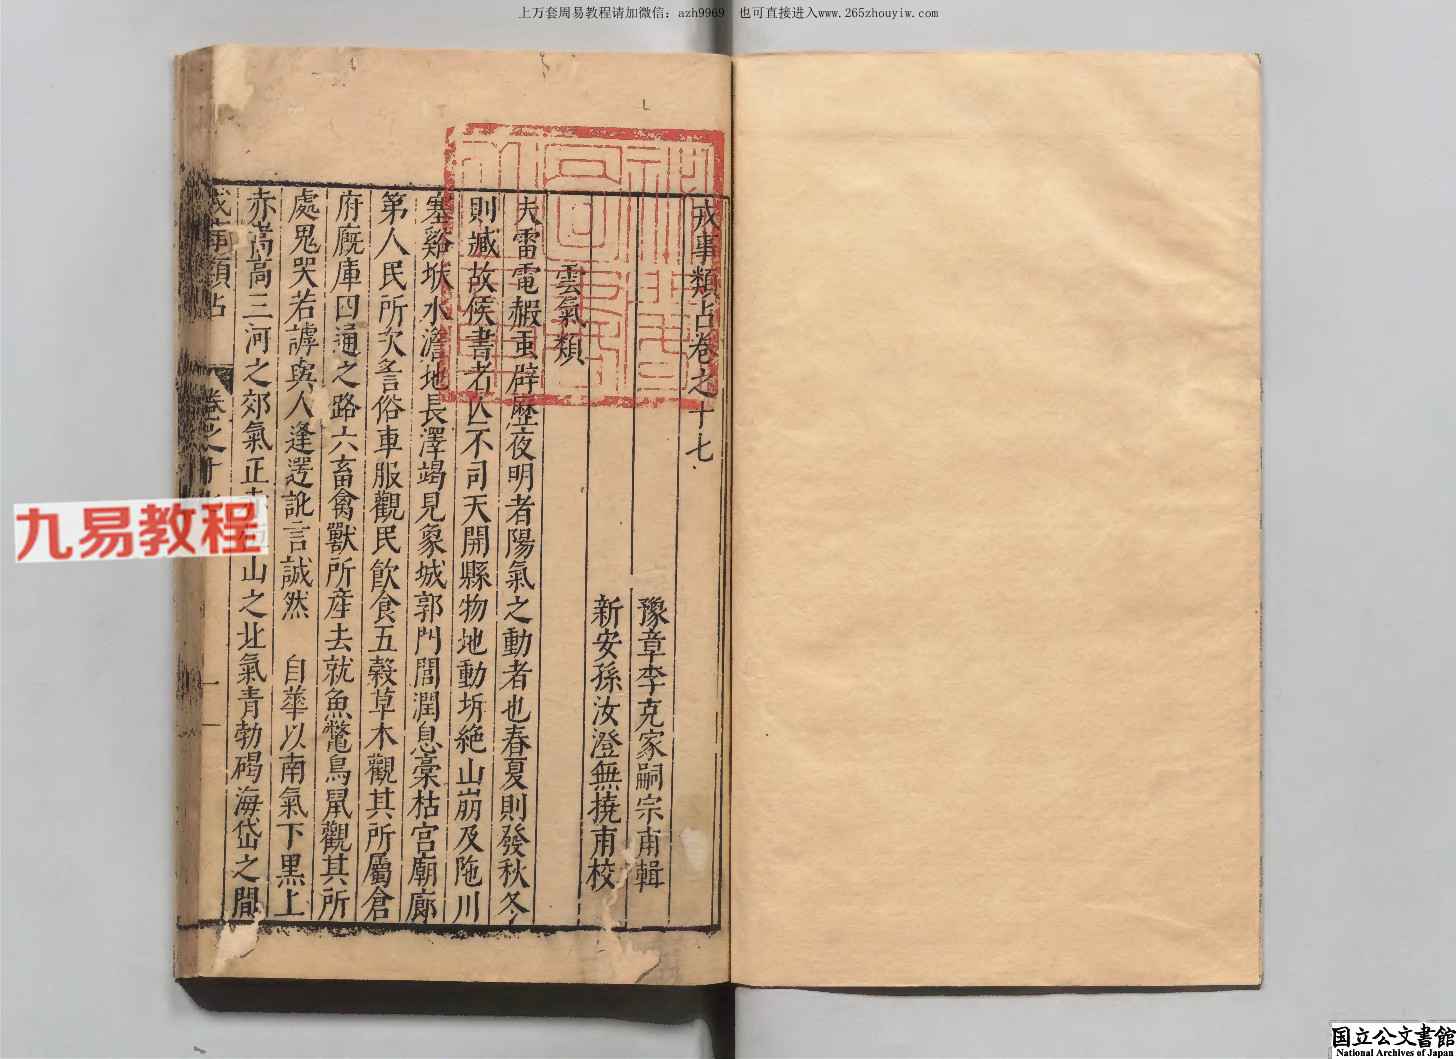 上万套周易教程请加微信：azh9969 也可直接进入www.265zhouyiw.com
戎事類占卷之十七
豫章李克家嗣宗甫輯
新安孫汝澄無撓甫校
雲氣類
夫雷電赮䖝辟歷夜明者陽氣之動者也春夏則發秋冬
則藏故候書者亾不司天開縣物地動坼絶山崩及陁川
塞谿垘水澹地長澤竭見象城郭門閭潤息藁枯宫廟廊
第人民所次謠俗車服觀民飲食五穀草木觀其所屬倉
府廐庫四通之路六畜禽獸所産去就魚鼈鳥鼠觀其所
處鬼哭若謼與人逢遻訛言誠然 自華以南氣下黒上
赤嵩高三河之郊氣正 山之北氣青勃碣海岱之間
類占 卷之十
九易教程
国立公文書館
National Archives of Japan